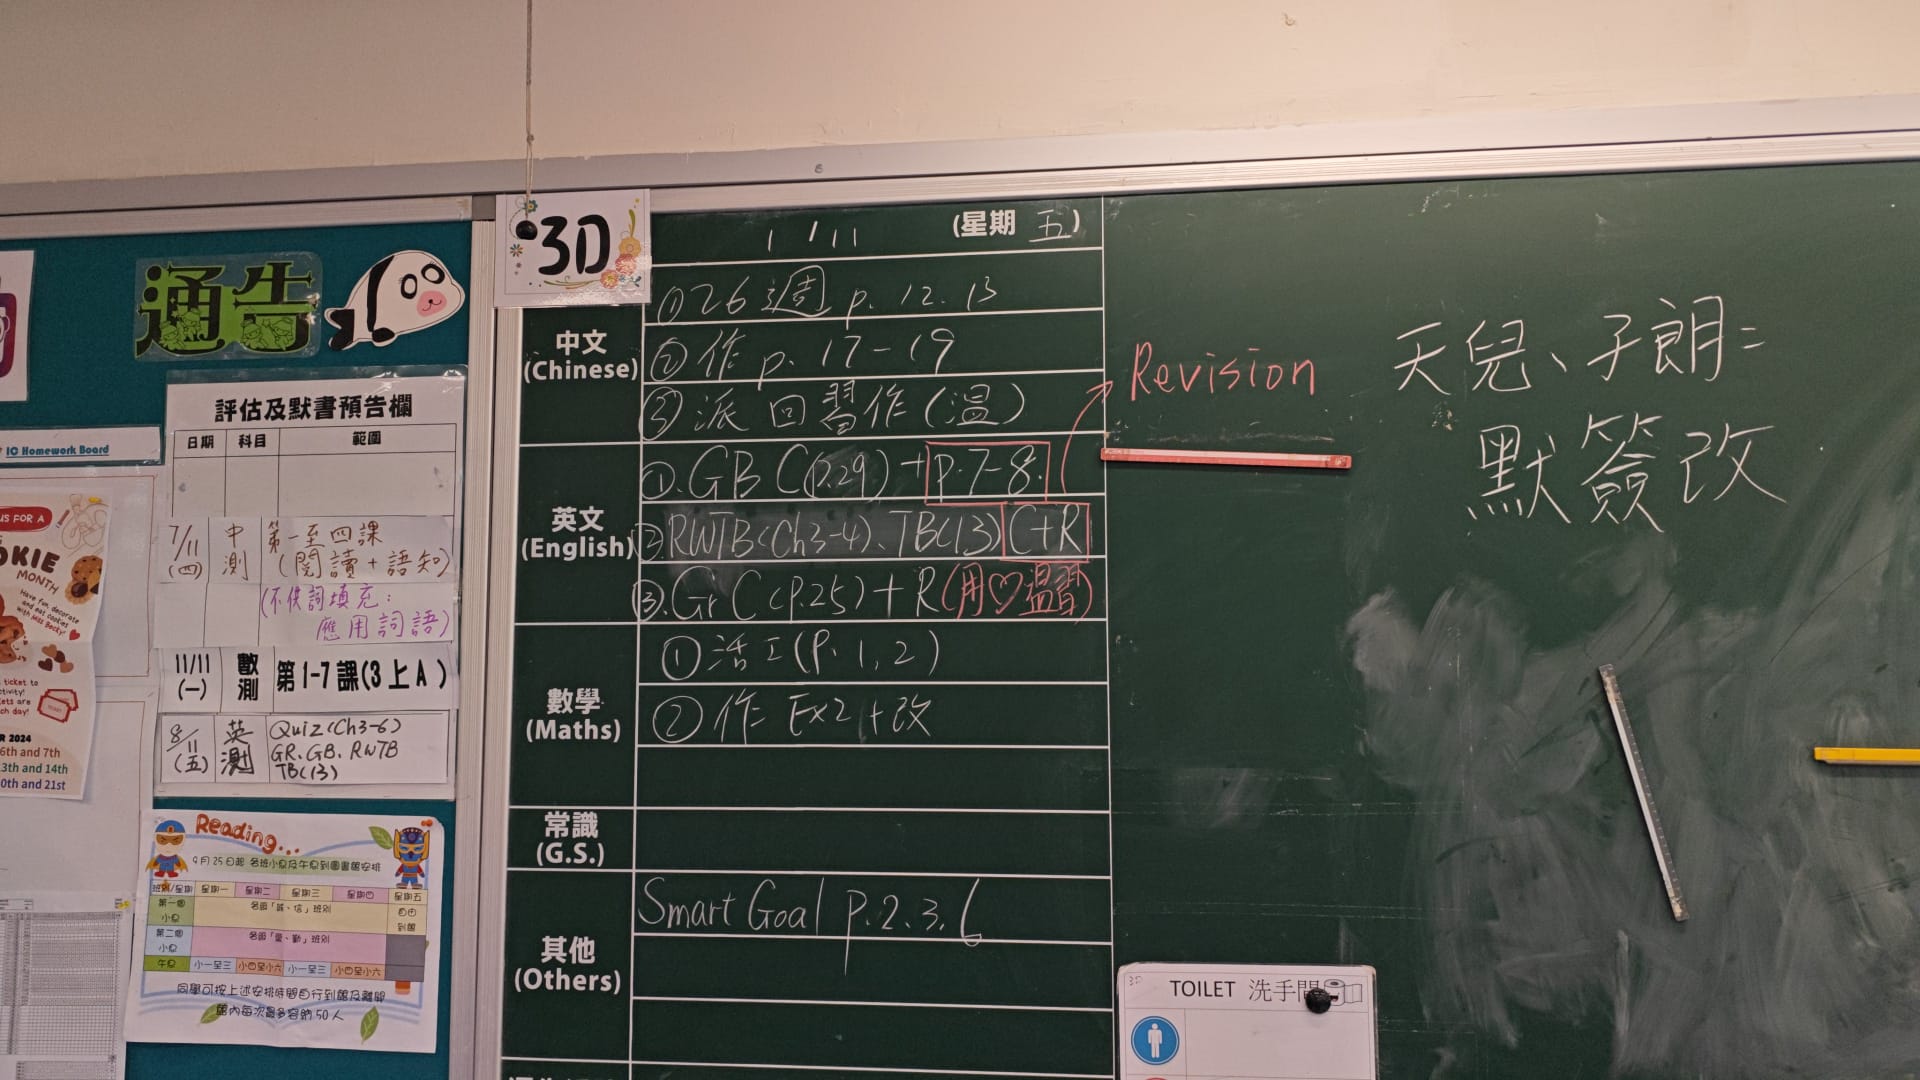 通告
IC Homework Board
US FOR A
OKIE
MONTH
Have fun, decorate
and eat cookies
with Miss Becky!
ticket to
tivity!
kets are
ch day!
R 2024
6th and 7th
13th and 14th
0th and 21st
評估及默書預告欄
日期 科目 範圍
7/11 (四) 中測 第一至四課
(閱讀+語知)
(不供詞填充:
應用詞語)
11/11 (一) 數測 第1-7課(3上A)
8/11 (五) 英測 Quiz(Ch3-6)
GR. GB. RWTB
TB(13)
Reading...
9月25日起 各班小息及午息到圖書館安排
班別/星期 星期一 星期二 星期三 星期四 星期五
第一個小息 各級「誠、信」班別 自由到館
第二個小息
午息 小一至三 小四至小六 小一至三 小四至小六
同學可按上述安排時間自行到館及離開
館內每次最多容納50人
3D
1/11 (星期 五)
中文 (Chinese)
① 26週 p. 12. 13
② 作 p. 17-19
③ 派回習作(溫)
英文 (English)
①. GB C(p.29) + p.7-8.
② RWTB(Ch3-4)、TB(13) C+R
③. Gr C (p.25) + R (用♡溫習)
數學 (Maths)
① 活工(P. 1, 2)
② 作: Ex2 + 改
常識 (G.S.)
其他 (Others)
Smart Goal p.2.3.6
Revision
天兒、子朗:
默簽改
3D
TOILET 洗手間